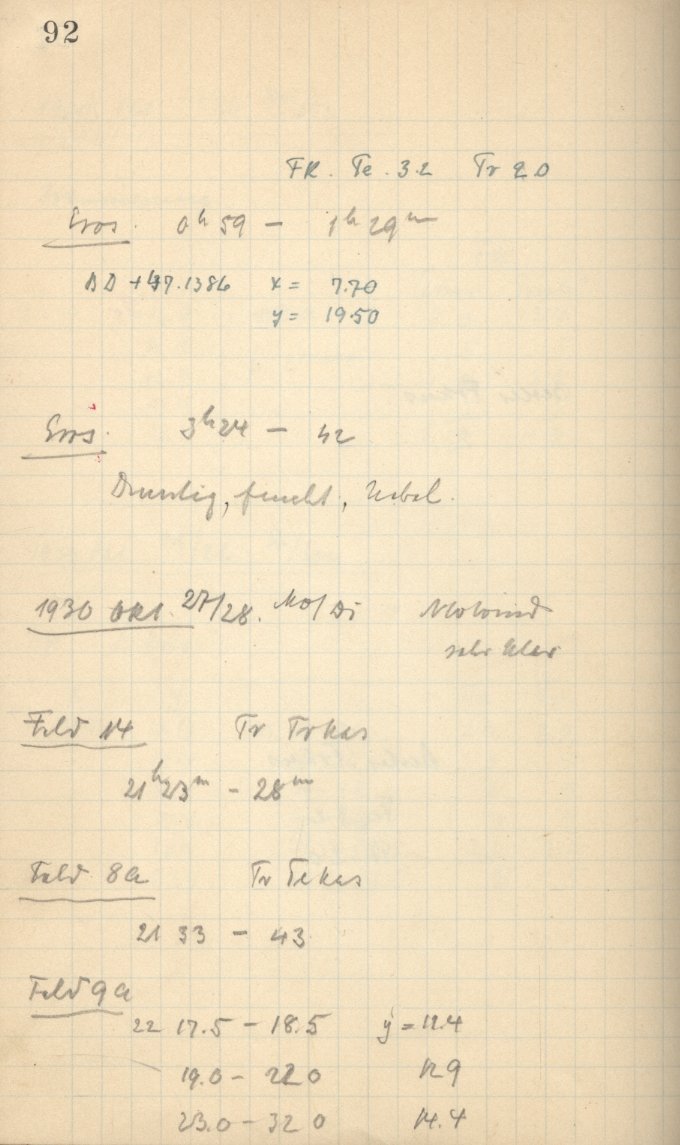 92
FK. Te. 32 Tr 20
Eros. 0h 59 – 1h 29m
BD +47.1386 x = 7.70
y = 19.50
Eros. 3h 24 – 42
Dunstig, feucht, Nebel.
1930 Okt. 27/28. Mo/Di
sehr klar
Feld 14 Tr Tekas
21h 23m – 28m
Feld 8a Tr Tekas
21 33 – 43
Feld 9a
22 17.5 – 18.5 y = 11.4
19.0 – 22 0 12 9
23.0 – 32 0 14.4